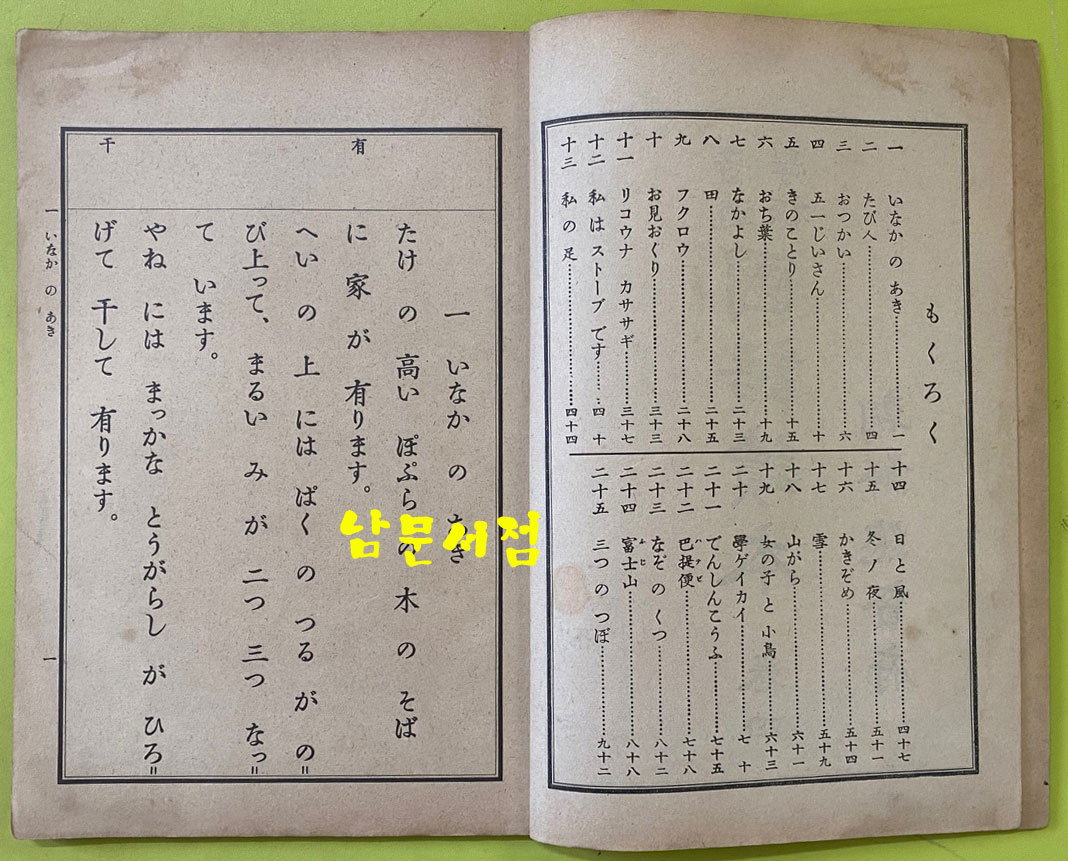 もくろく
一 いなか の あき……一
二 たび人……四
三 おつかい……六
四 五一じいさん……十
五 きのことり……十五
六 おち葉……十九
七 なかよし……二十三
八 田……二十五
九 フクロウ……二十八
十 お見おくり……三十三
十一 リコウナ カササギ……三十七
十二 私は ストーブ です……四十
十三 私 の 足……四十四
十四 日 と 風……四十七
十五 冬 ノ 夜……五十一
十六 かきぞめ……五十四
十七 雪……五十九
十八 山がら……六十一
十九 女の子 と 小鳥……六十三
二十 學ゲイカイ……七十
二十一 でんしんこうふ……七十五
二十二 巴提便……七十八
二十三 なぞ の くつ……八十二
二十四 富士山……八十八
二十五 三つ の つぼ……九十二
有
干
一 いなか の あき
たけ の 高い ぽぷら の 木 の そば
に 家 が 有ります。
へい の 上 には ぱく の つる が の゠
び上って、まるい み が 二つ 三つ なっ゠
て います。
やね には まっかな とうがらし が ひろ゠
げて 干して 有ります。
一 いなか の あき
一
남문서점